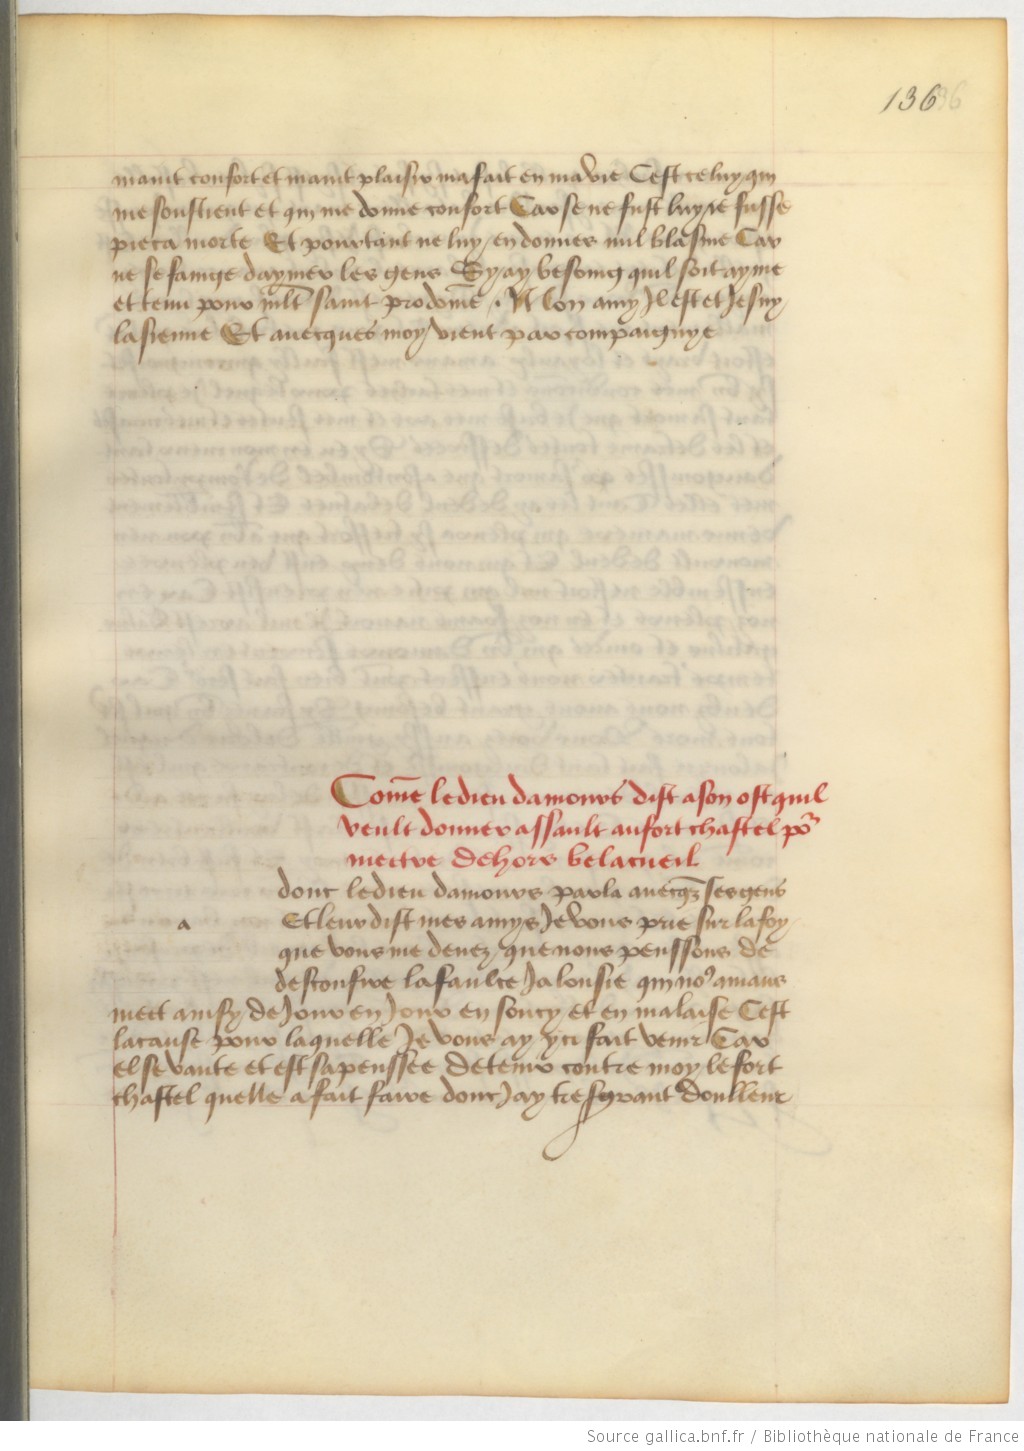 136
maint confort et maint plaisir ma fait en ma vie Cest celuy qui
me soustient et qui me donne confort Car se ne fust luy Je fusse
pieca morte Et pourtant ne luy en donnes nul blasme Car
ne se fainge daymer les gens Sy ay besoing quil soit ayme
et tenu pour mlt saint prodome . Mon amy Il est et Je suy
la sienne Et auecques moy vient par compaignye
Come le dieu damours dist a son ost quil
veult donner assault au fort chastel po
mectre dehors belacueil
donc le dieu damours parla auecqz ses gens
a
Et leur dist mes amys Je vous prie sur la foy
que vous me deuez que nous penssons de
desconfire la faulce Jalousie qui no9 amans
mect ainsy de Jour en Jour en soucy et en malaise Cest
la cause pour laquelle Je vous ay yci fait venir Car
el se vante et est sa penssee de tenir contre moy le fort
chastel quelle a fait faire dont Jay tresgrant doulleur
Source gallica.bnf.fr / Bibliothèque nationale de France